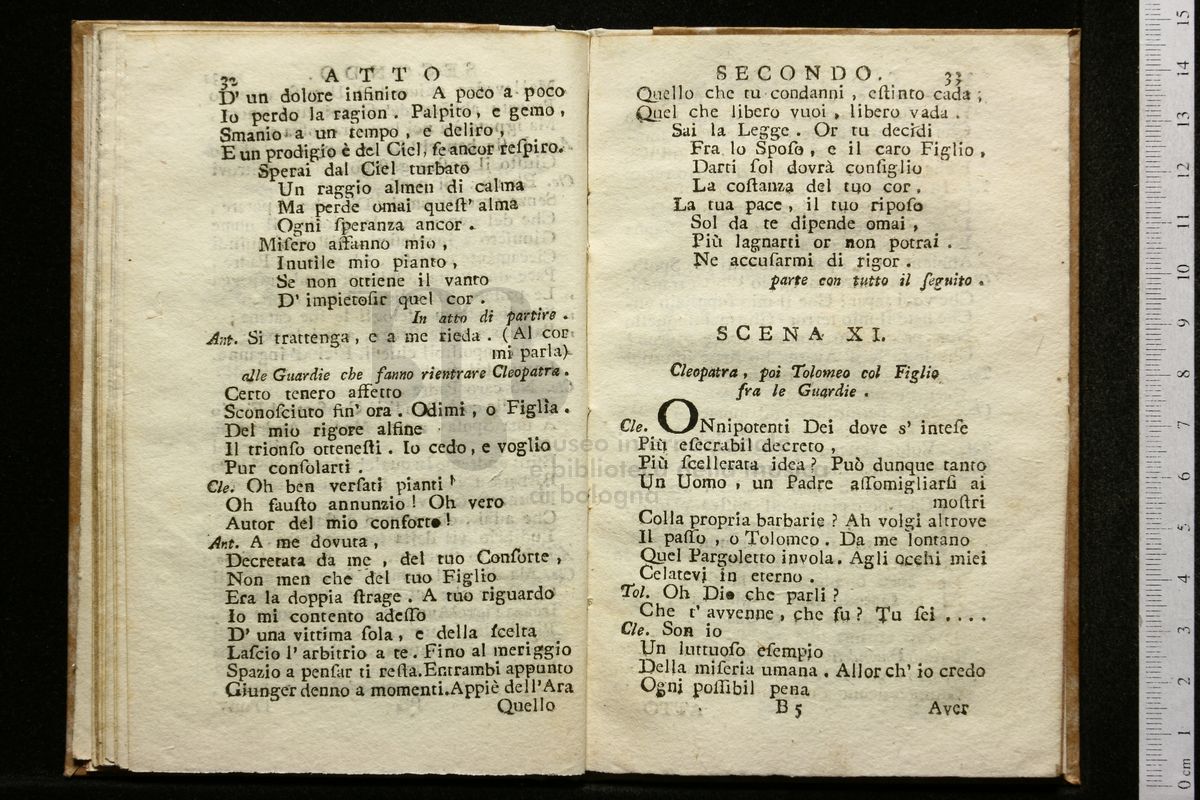 32 ATTO
D' un dolore infinito A poco a poco
Io perdo la ragion. Palpito, e gemo,
Smanio a un tempo, e deliro,
E un prodigio è del Ciel, ſe ancor reſpiro.
Sperai dal Ciel turbato
Un raggio almen di calma
Ma perde omai queſt' alma
Ogni ſperanza ancor.
Miſero affanno mio,
Inutile mio pianto,
Se non ottiene il vanto
D' impietoſir quel cor.
In atto di partire.
Ant. Si trattenga, e a me rieda. (Al cor
mi parla)
alle Guardie che fanno rientrare Cleopatra.
Certo tenero affetto
Sconoſciuto fin' ora. Odimi, o Figlia.
Del mio rigore alfine
Il trionfo otteneſti. Io cedo, e voglio
Pur conſolarti.
Cle. Oh ben verſati pianti!
Oh fauſto annunzio! Oh vero
Autor del mio conforto!
Ant. A me dovuta,
Decretata da me, del tuo Conſorte,
Non men che del tuo Figlio
Era la doppia ſtrage. A tuo riguardo
Io mi contento adeſſo
D' una vittima ſola, e della ſcelta
Laſcio l' arbitrio a te. Fino al meriggio
Spazio a penſar ti reſta. Entrambi appunto
Giunger denno a momenti. Appiè dell' Ara
Quello
SECONDO. 33
Quello che tu condanni, eſtinto cada;
Quel che libero vuoi, libero vada.
Sai la Legge. Or tu decidi
Fra lo Spoſo, e il caro Figlio,
Darti ſol dovrà conſiglio
La coſtanza del tuo cor.
La tua pace, il tuo ripoſo
Sol da te dipende omai,
Più lagnarti or non potrai.
Ne accuſarmi di rigor.
parte con tutto il ſeguito.
SCENA XI.
Cleopatra, poi Tolomeo col Figlio
fra le Guardie.
Cle. ONnipotenti Dei dove s' inteſe
Più eſecrabil decreto,
Più ſcellerata idea? Può dunque tanto
Un Uomo, un Padre aſſomigliarſi ai
moſtri
Colla propria barbarie? Ah volgi altrove
Il paſſo, o Tolomeo. Da me lontano
Quel Pargoletto invola. Agli occhi miei
Celatevi in eterno.
Tol. Oh Dio che parli?
Che t' avvenne, che fu? Tu ſei ....
Cle. Son io
Un luttuoſo eſempio
Della miſeria umana. Allor ch' io credo
Ogni poſſibil pena
B 5 Aver
museo in
e biblioteca della musica
di bologna
0 cm 1 2 3 4 5 6 7 8 9 10 11 12 13 14 15